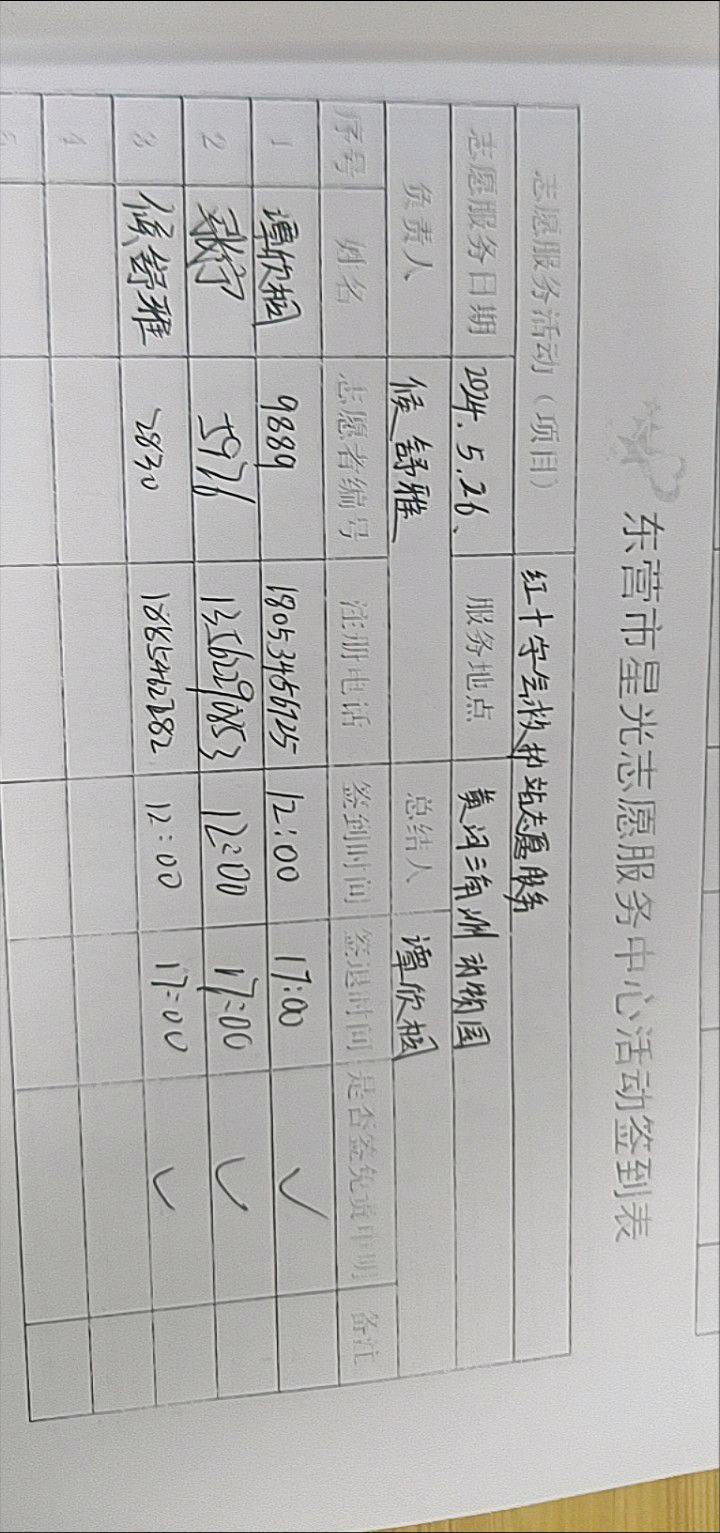 东营市星光志愿服务中心活动签到表
志愿服务活动（项目） 红十字会救护站志愿服务
志愿服务日期 2024.5.26、 服务地点 黄河三角洲动物园
负责人 侯舒雅 总结人 谭欣
序号 姓名 志愿者编号 注册电话 签到时间 签退时间 是否签免责申明 备注
1 谭欣 9889 18053456725 12:00 17:00 ✓
2 张宁 5926 12:00 17:00 ✓
3 侯舒雅 2830 12:00 17:00 ✓
4
5